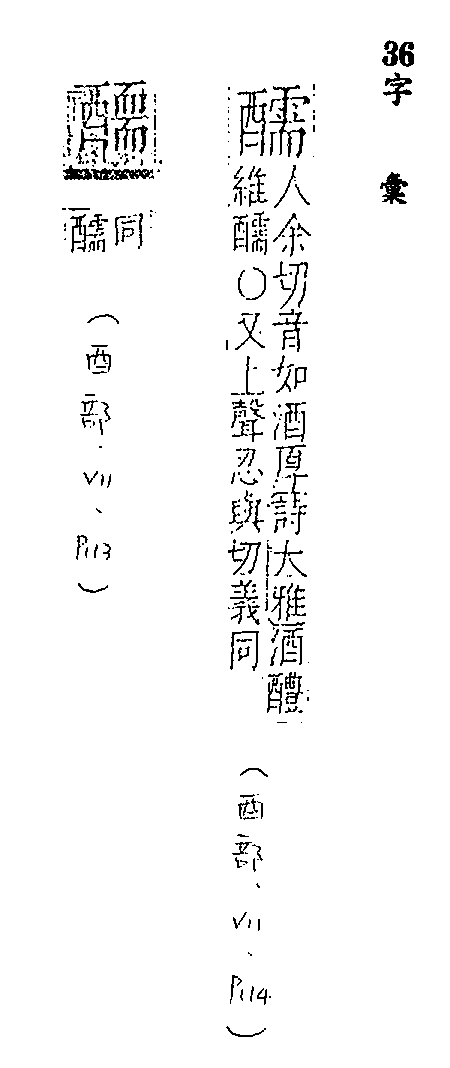 36字彙
醹
人余切音如酒厚詩大雅酒醴
維醹○又上聲忍與切義同
(酉部、VII、P114)
同
醹
(酉部、VII、P113)